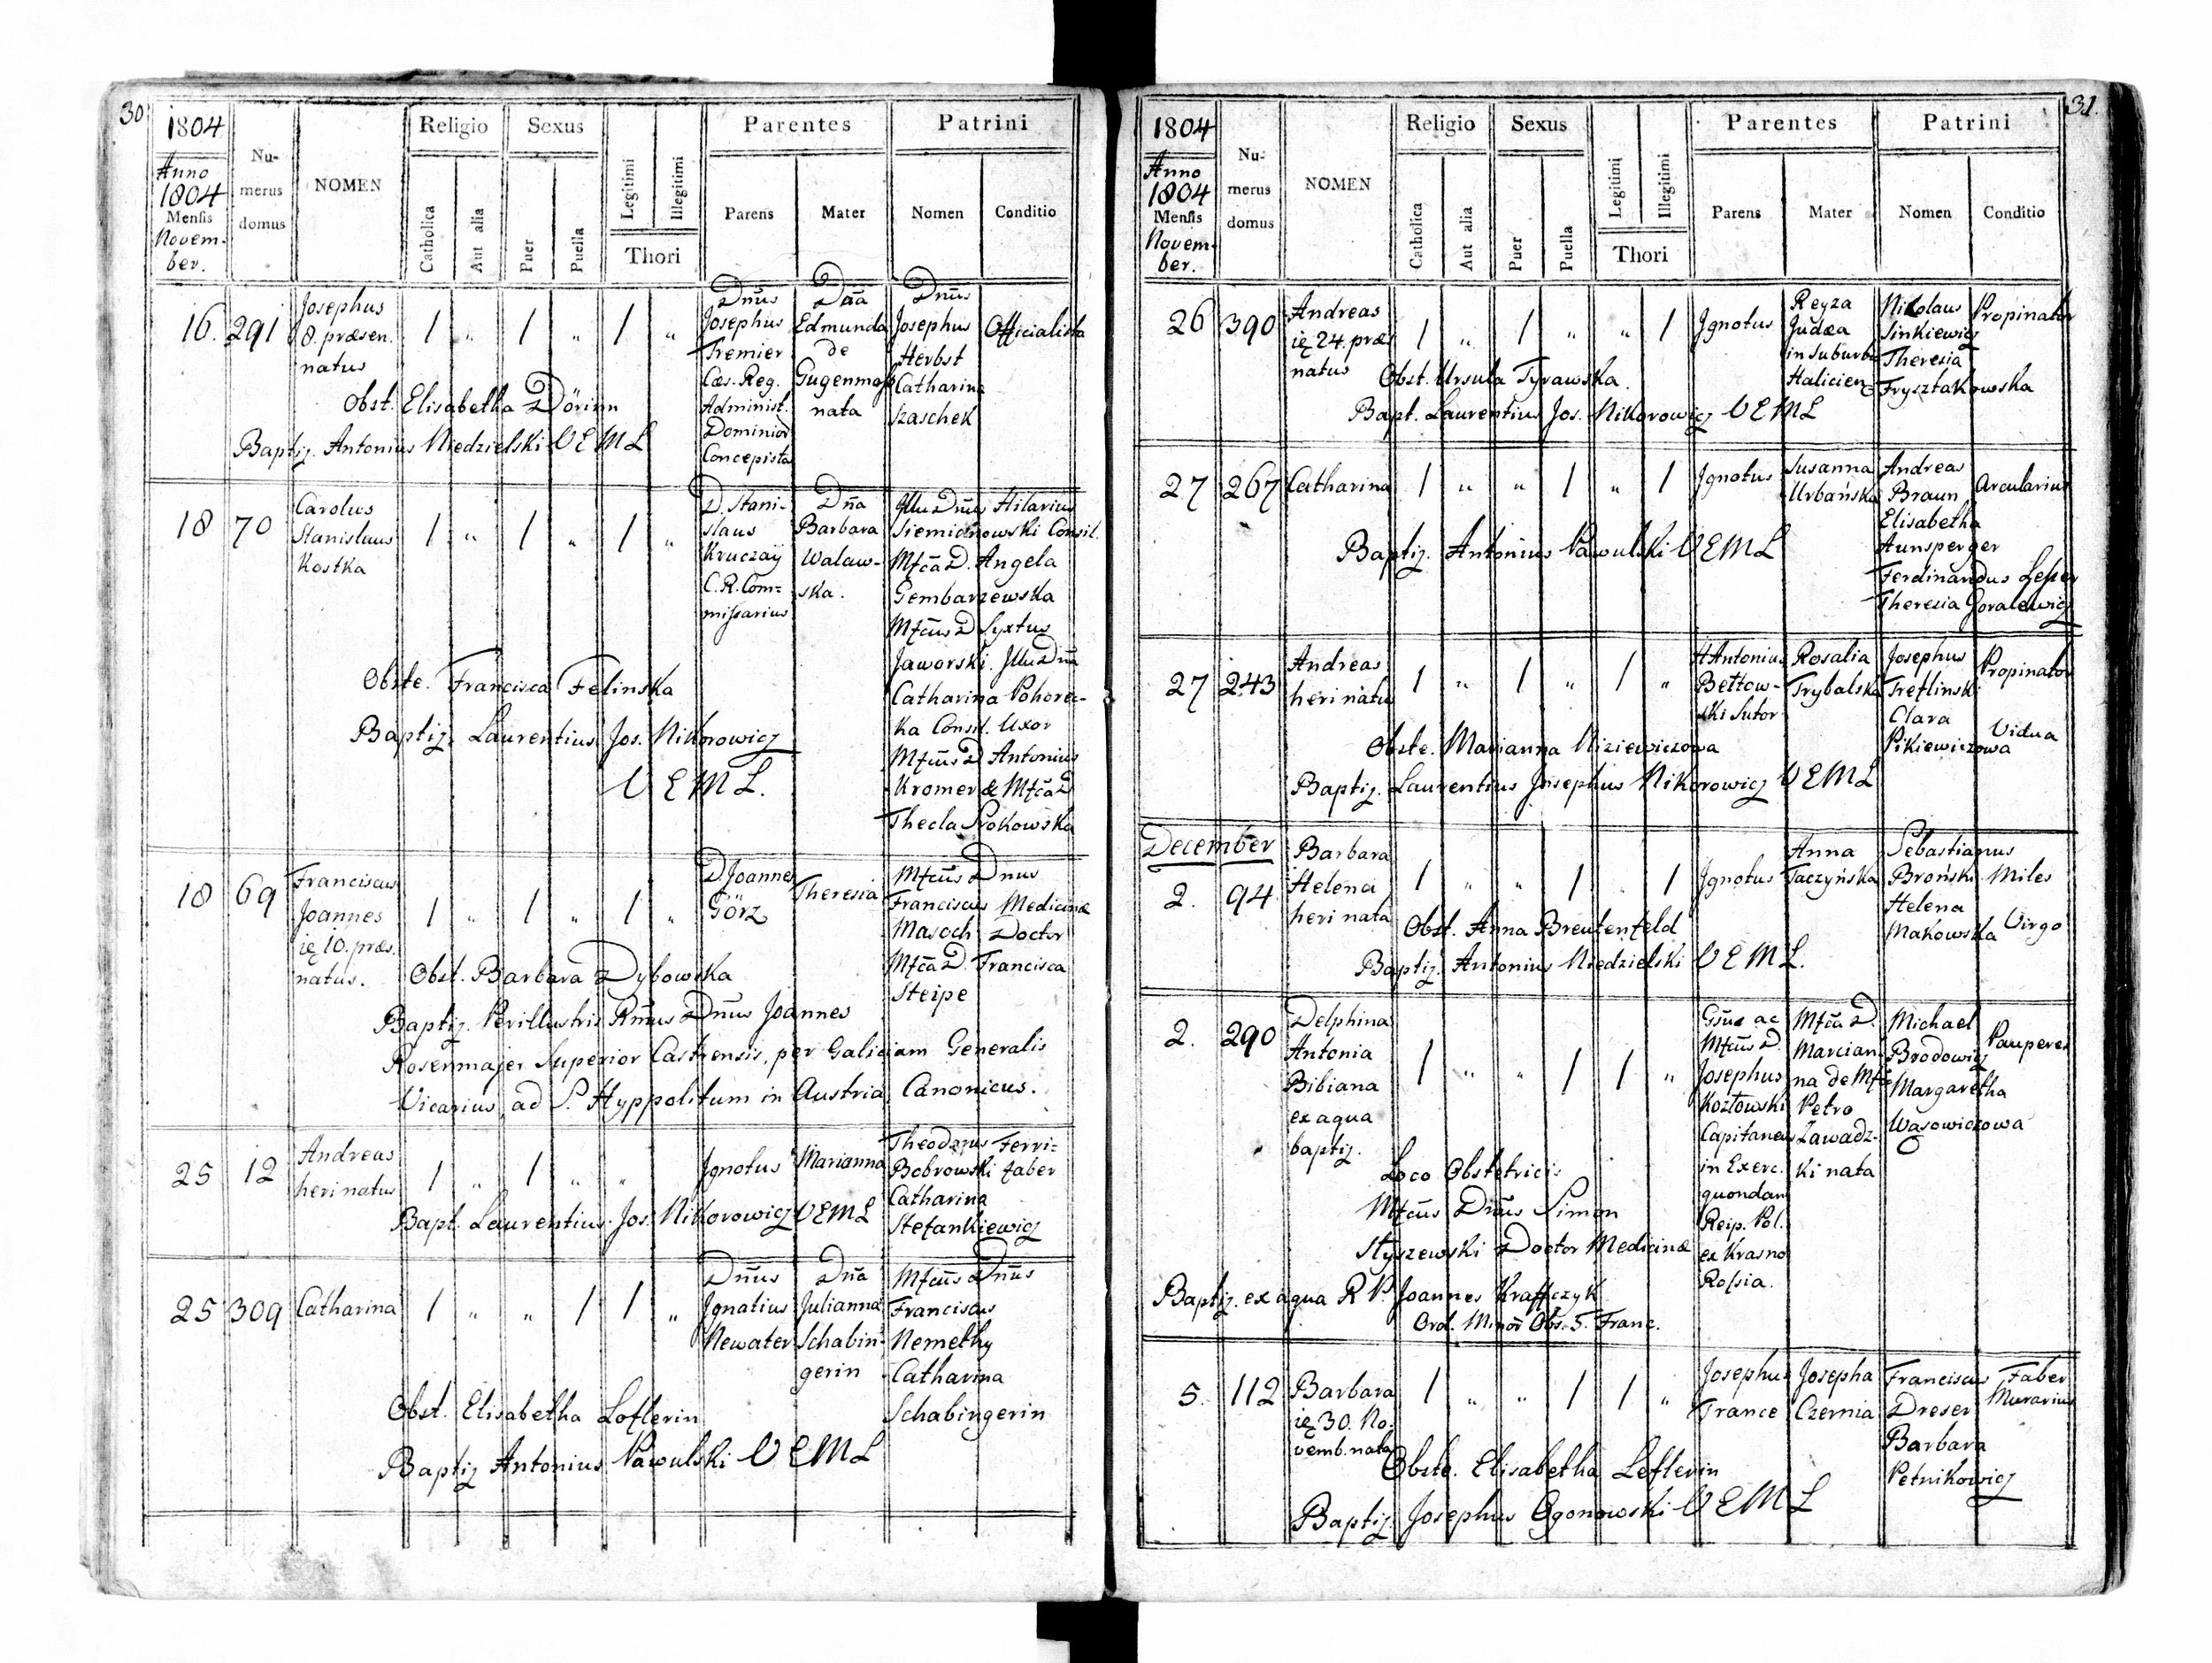 30
1804
Anno
1804
Mensis
Novem-
ber.
Nu-
merus
domus
NOMEN
Religio
Catholica
Aut alia
Sexus
Puer
Puella
Legitimi
Illegitimi
Thori
Parentes
Parens
Mater
Patrini
Nomen
Conditio
16. 291
Josephus
8. præsen.
natus
1 " 1 " 1 "
Dnus
Josephus
Tremier
Cæs. Reg.
Administ.
Dominior
Concepista
Dna
Edmunda
de
Gugenmos
nata
Dnus
Josephus
Herbst
Catharina
Szaschek
Officialista
Obst. Elisabetha Dörinn
Baptiz. Antonius Niedzielski V E M L
18 70
Carolus
Stanislaus
Kostka
1 " 1 " 1 "
D. Stani-
slaus
Kruczaÿ
C. R. Com=
missarius
Dña
Barbara
Walaw-
ska.
Illu Dnus Hilarius
Siemianowski Consil.
Mfca D. Angela
Gembarzewska
Mfcus D Syxtus
Jaworski. Illu Dna
Catharina Pohorec-
ka Consil. Uxor
Mfcus D Antonius
Kromer & Mfca D
Thecla Prokowska
Obste. Francisca Felinska
Baptiz. Laurentius Jos. Nikorowicz
V E M L.
18 69
Franciscus
Joannes
ię 10. præs.
natus.
1 " 1 " 1 "
D. Joannes
Görz
Theresia
Mfcus Dnus
Franciscus Medicinæ
Masoch Doctor
Mfca D. Francisca
Steipe
Obst. Barbara Dybowska
Baptiz. Perillustris Rmus Dnus Joannes
Rosenmajer Superior Castrensis, per Galiciam Generalis
Vicarius, ad S. Hyppolitum in Austria, Canonicus.
25 12
Andreas
heri natus
1 " 1 " "
Ignotus
Marianna
Theodorus Ferri=
Bobrowski faber
Catharina
Stefankiewicz
Bapt. Laurentius Jos. Nikorowicz V E M L
25 309
Catharina
1 " " 1 1 "
Dnus
Ignatius
Newater
Dna
Julianna
Schabin-
gerin
Mfcus Dnus
Franciscus
Nemethy
Catharina
Schabingerin
Obst. Elisabetha Loflerin
Baptiz Antonius Pawulski V E M L
31.
1804
Anno
1804
Mensis
Novem-
ber.
Nu-
merus
domus
NOMEN
Religio
Catholica
Aut alia
Sexus
Puer
Puella
Legitimi
Illegitimi
Thori
Parentes
Parens
Mater
Patrini
Nomen
Conditio
26 390
Andreas
ię 24. præs
natus
1 " 1 " " 1
Ignotus
Reyza
Judæa
in Suburb.
Halicien
Nikolaus
Sinkiewicz
Theresia
Frysztakowska
Propinator
Obst. Ursula Tyrawska.
Bapt. Laurentius Jos. Nikorowicz V E M L
27 267
Catharina
1 " " 1 " 1
Ignotus
Susanna
Urbańska
Andreas
Braun
Elisabetha
Hunsperger
Ferdinandus Lesser
Theresia Goralewicz
Arcularius
Baptiz. Antonius Pawulski V E M L
27 243
Andreas
heri natus
1 " 1 " 1 "
H Antonius
Bełtow-
ski Sutor
Rosalia
Trybalska
Josephus
Treflinski
Clara
Pikiewiczowa
Propinator
Vidua
Obste. Marianna Niziewiczowa
Baptiz. Laurentius Josephus Nikorowicz V E M L
December
2. 94
Barbara
Helena
heri nata
1 " " 1 " 1
Ignotus
Anna
Taczyńska
Sebastianus
Broński
Helena
Makowska
Miles
Virgo
Obst. Anna Breutenfeld
Baptiz. Antonius Niedzielski V E M L.
2. 290
Delphina
Antonia
Bibiana
ex aqua
baptiz.
1 " " 1 1 "
Gsus ac
Mfcus D.
Josephus
Kozłowski
Capitaneus
in Exerc.
quondam
Reip. Pol.
ex Krasno
Rossia.
Mfca D.
Marcian-
na de Mfco
Petro
Zawadz-
ki nata
Michael
Brodowicz
Margaretha
Wąsowiczowa
Pauperes
Loco Obstetricis
Mfcus Dnus Simon
Styszewski Doctor Medicinæ
Baptiz. ex aqua R. P. Joannes Kraffczyk
Ord. Minor Obs. S. Franc.
5. 112
Barbara
ię 30. No-
vemb. nata
1 " " 1 1 "
Josephus
Trance
Josepha
Czernia
Franciscus
Dreser
Barbara
Petnikowicz
Faber
Murarius
Obste. Elisabetha Leflerin
Baptiz. Josephus Ogonowski V E M L